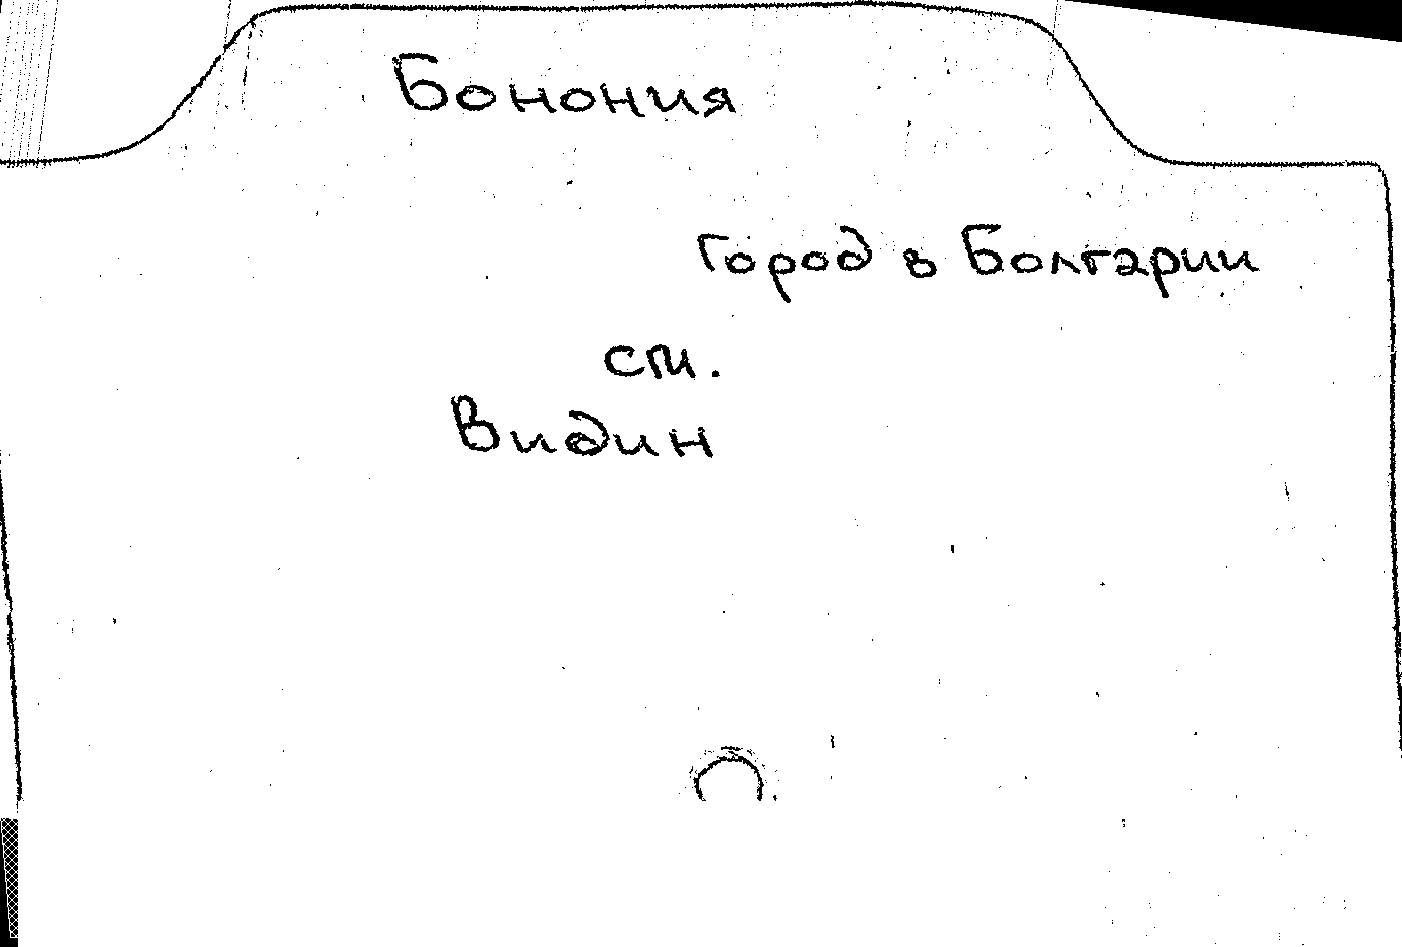 Бонония
Город в Болгарии
см.
Видин